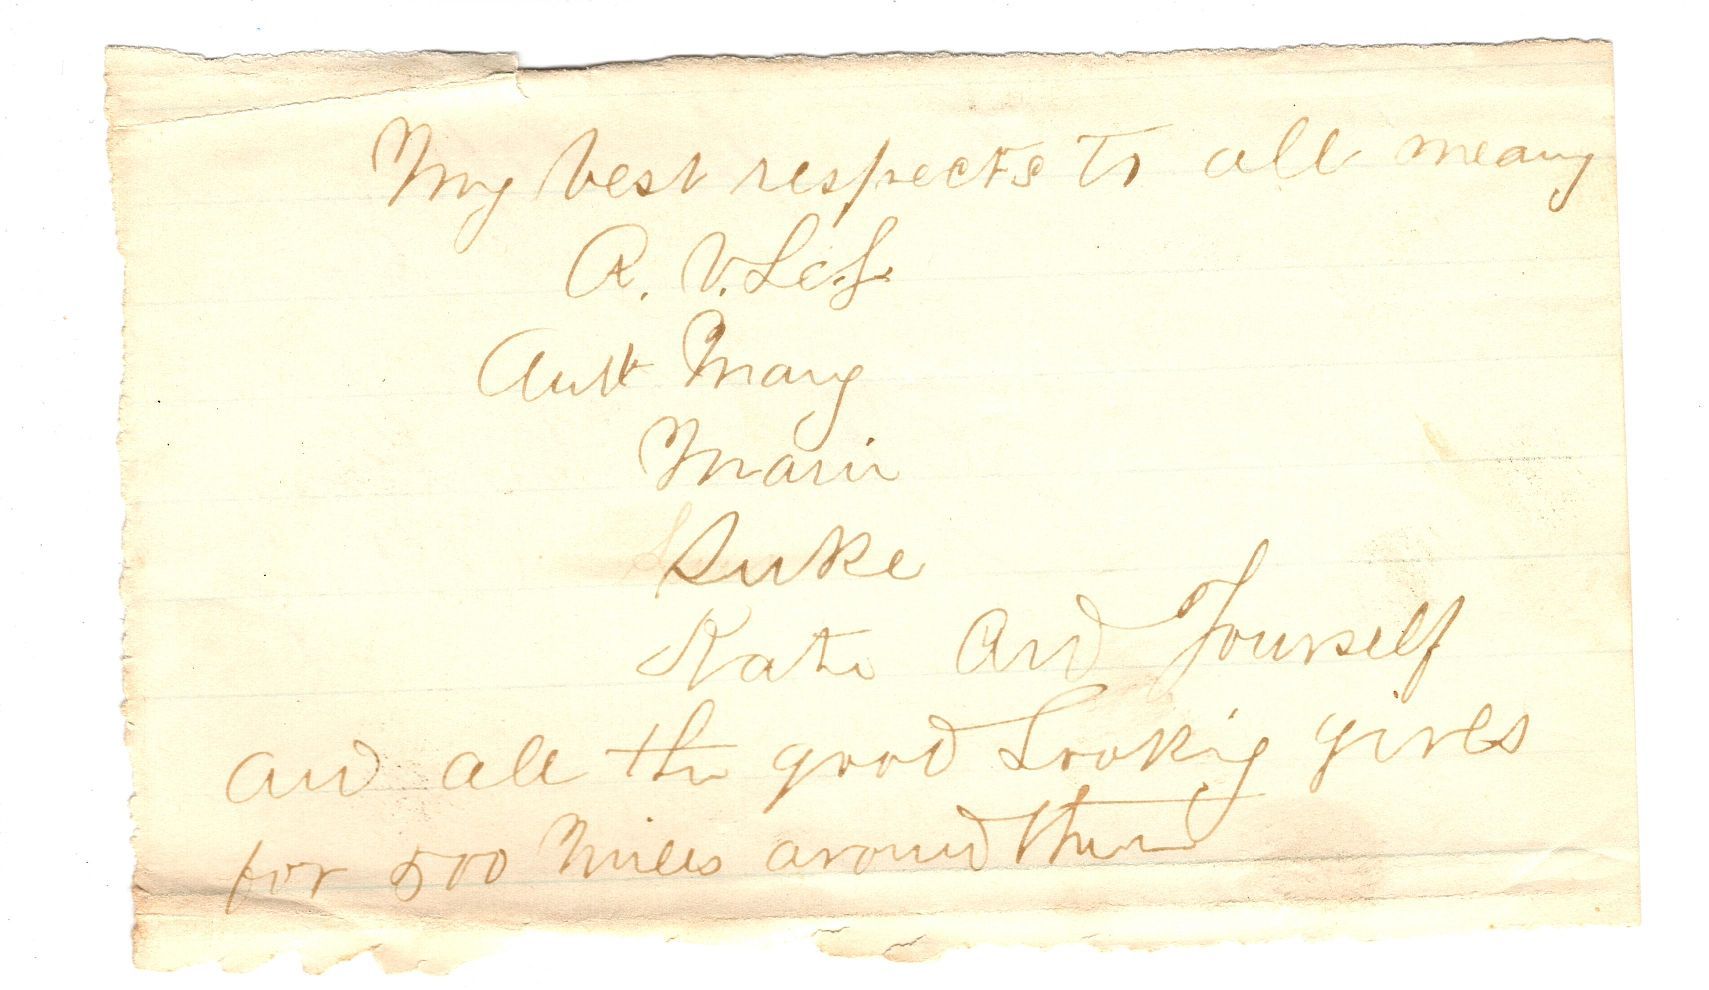 My best respects to all meany
R. V. Lef
Autt Mary
Marie
Duke
Kate And Yourself
and all the good Looking girls
for 500 Miles around there